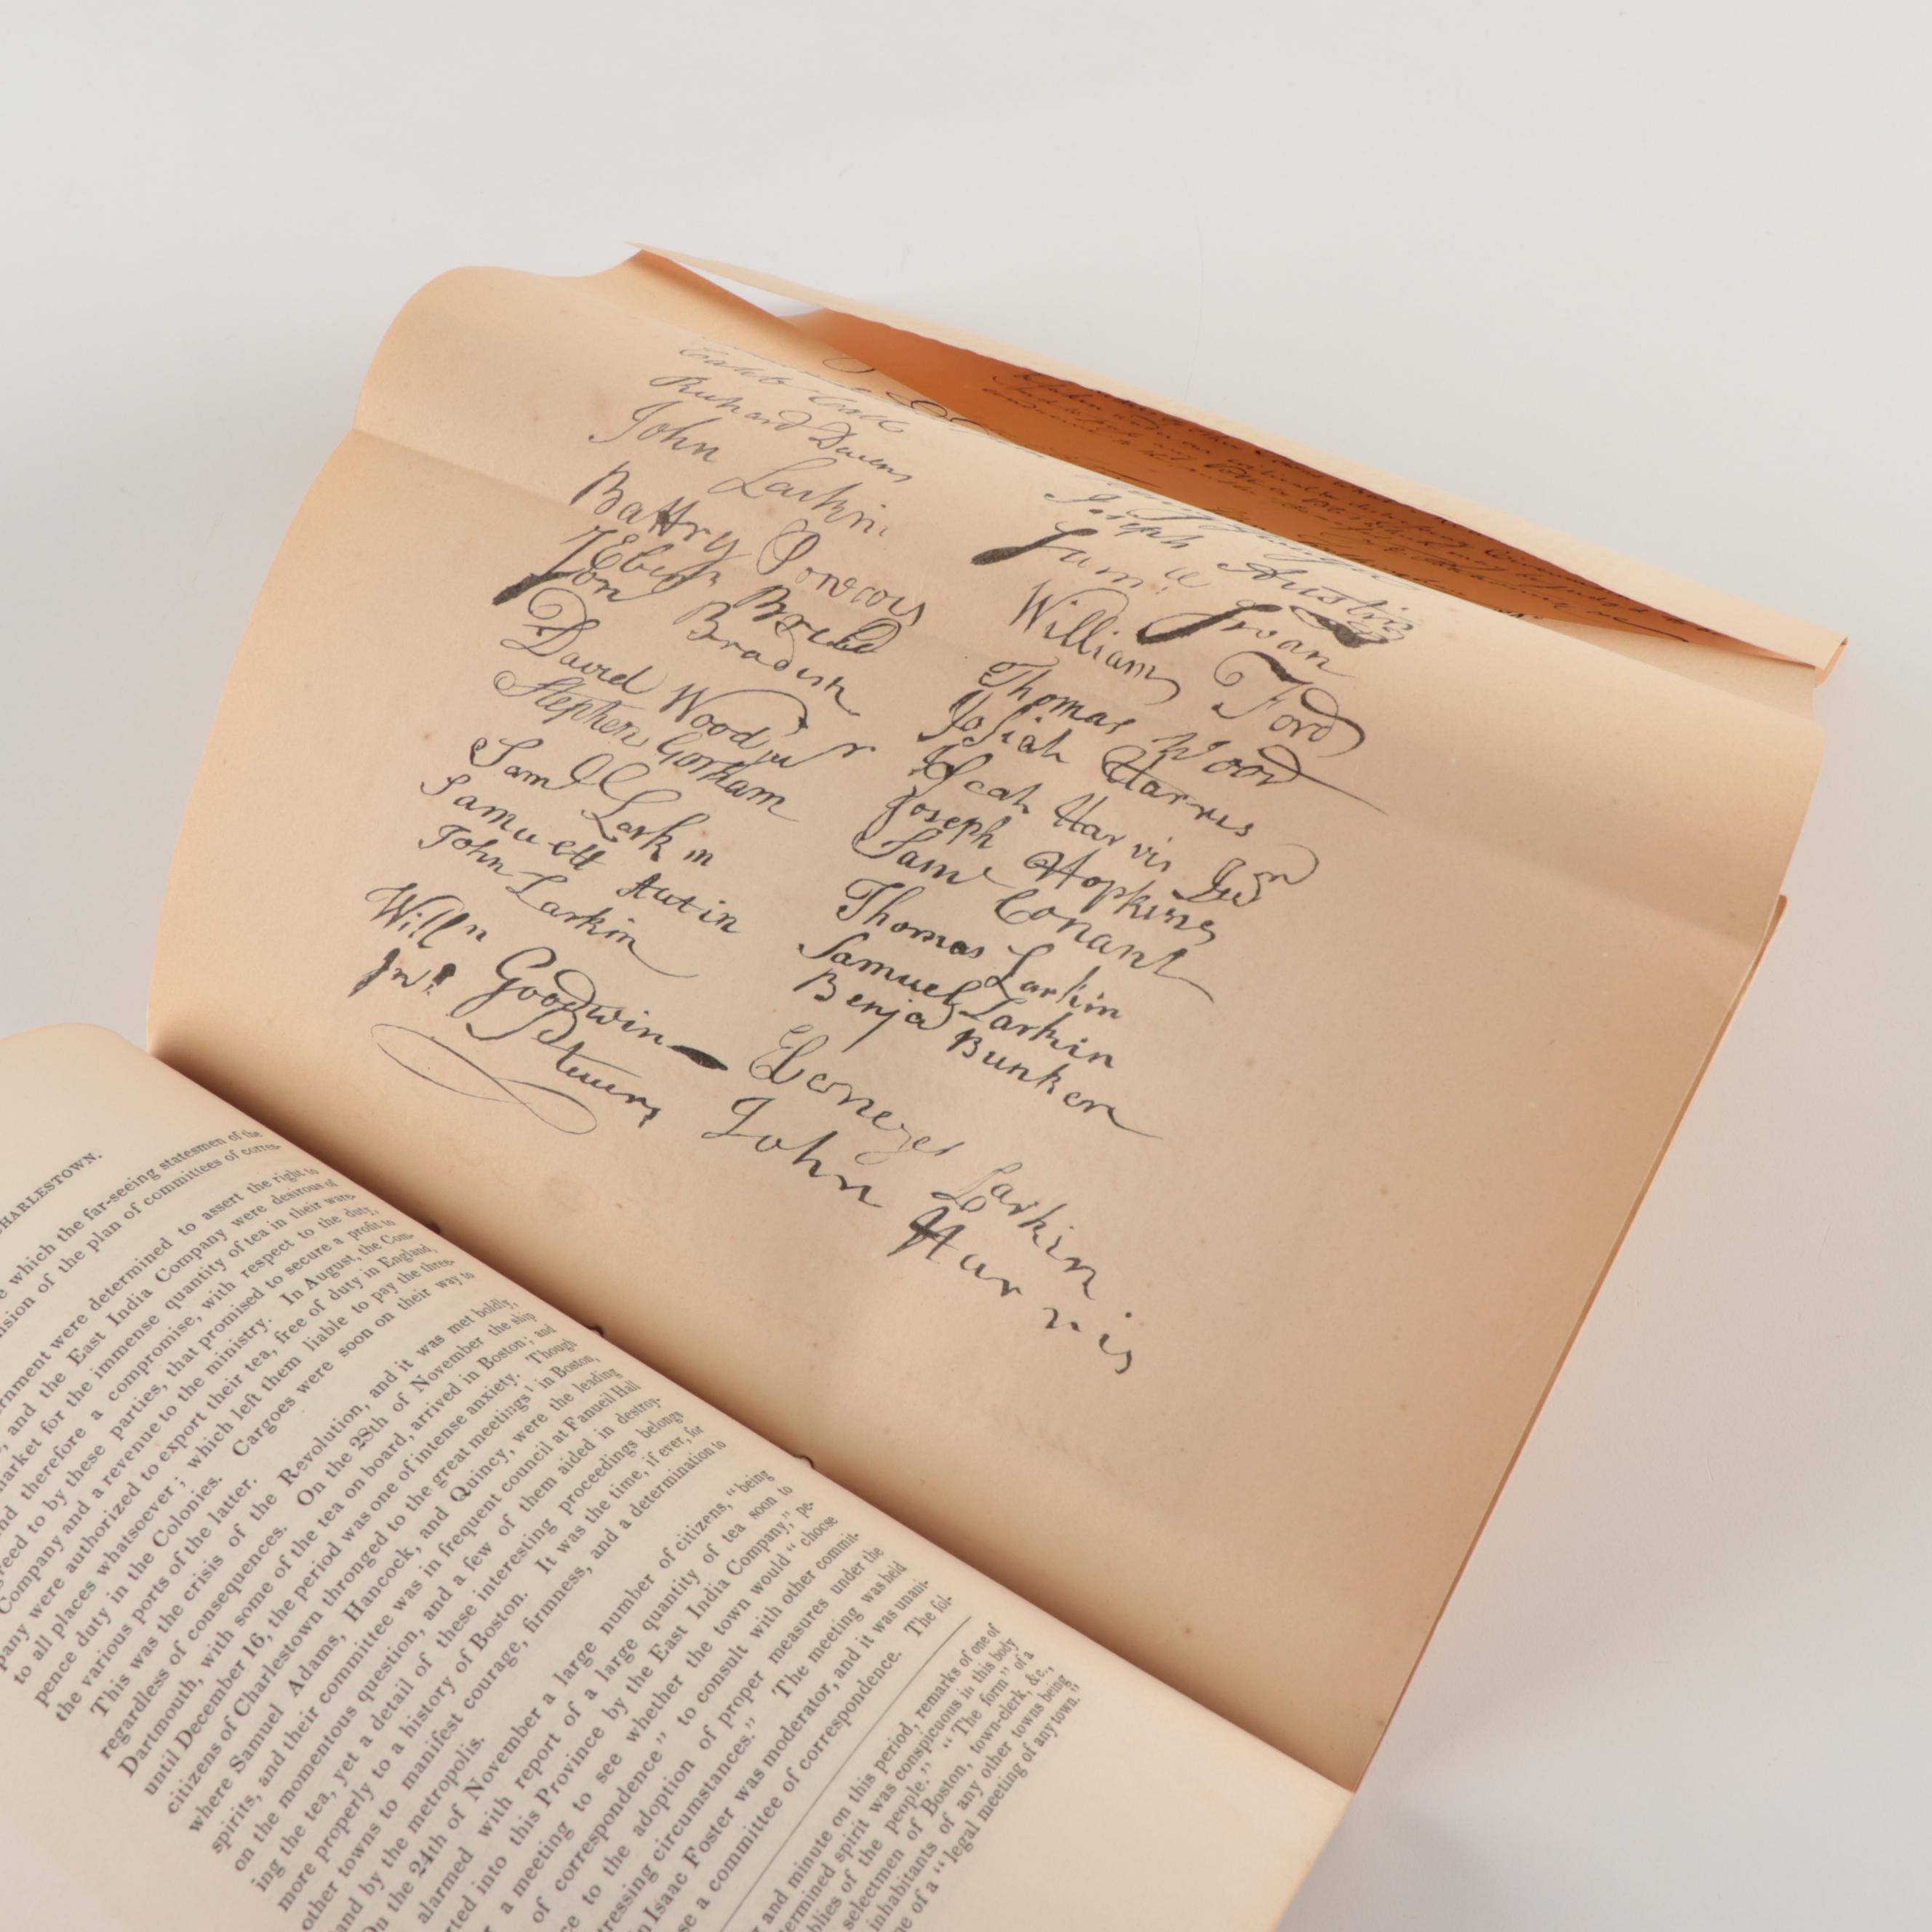 Caleb Call
Richard Devens
John Larkin
Battry Powars
Eben Breed
Jon Bradish
David Wood jur
Stephen Gorham
Saml Larkin
Samuell Autin
John Larkin
Willm Goodwin
Jno Stevens
Joseph Austin
Saml Swan
William Ford
Thomas Wood
Josiah Harris
Harris Jun
Joseph Hopkins
Saml Conant
Thomas Larkin
Samuel Larkin
Benja Bunker
Ebenezer Larkin
John Harris
CHARLESTOWN.
which the far-seeing statesmen of the
sion of the plan of committees of corres-
ernment were determined to assert the right to
, and the East India Company were desirous of
market for the immense quantity of tea in their ware-
nd therefore a compromise, with respect to the duty,
reed to by these parties, that promised to secure a profit to
Company and a revenue to the ministry. In August, the Com-
pany were authorized to export their tea, free of duty in England,
to all places whatsoever; which left them liable to pay the three-
pence duty in the Colonies. Cargoes were soon on their way to
the various ports of the latter.
This was the crisis of the Revolution, and it was met boldly,
regardless of consequences. On the 28th of November the ship
Dartmouth, with some of the tea on board, arrived in Boston; and
until December 16, the period was one of intense anxiety. Though
citizens of Charlestown thronged to the great meetings¹ in Boston,
where Samuel Adams, Hancock, and Quincy, were the leading
spirits, and their committee was in frequent council at Fanueil Hall
on the momentous question, and a few of them aided in destroy-
ing the tea, yet a detail of these interesting proceedings belongs
more properly to a history of Boston. It was the time, if ever, for
other towns to manifest courage, firmness, and a determination to
and by the metropolis.
On the 24th of November a large number of citizens, "being
alarmed with report of a large quantity of tea soon to
rted into this Province by the East India Company," pe-
r a meeting to see whether the town would "choose
of correspondence" to consult with other commit-
ce to the adoption of proper measures under the
tressing circumstances." The meeting was held
n Isaac Foster was moderator, and it was unani-
se a committee of correspondence. The fol-
and minute on this period, remarks of one of
termined spirit was conspicuous in this body
blies of the people." "The form" of a
selectmen of Boston, town-clerk, &c.,
inhabitants of any other towns being
ne of a "legal meeting of any town."